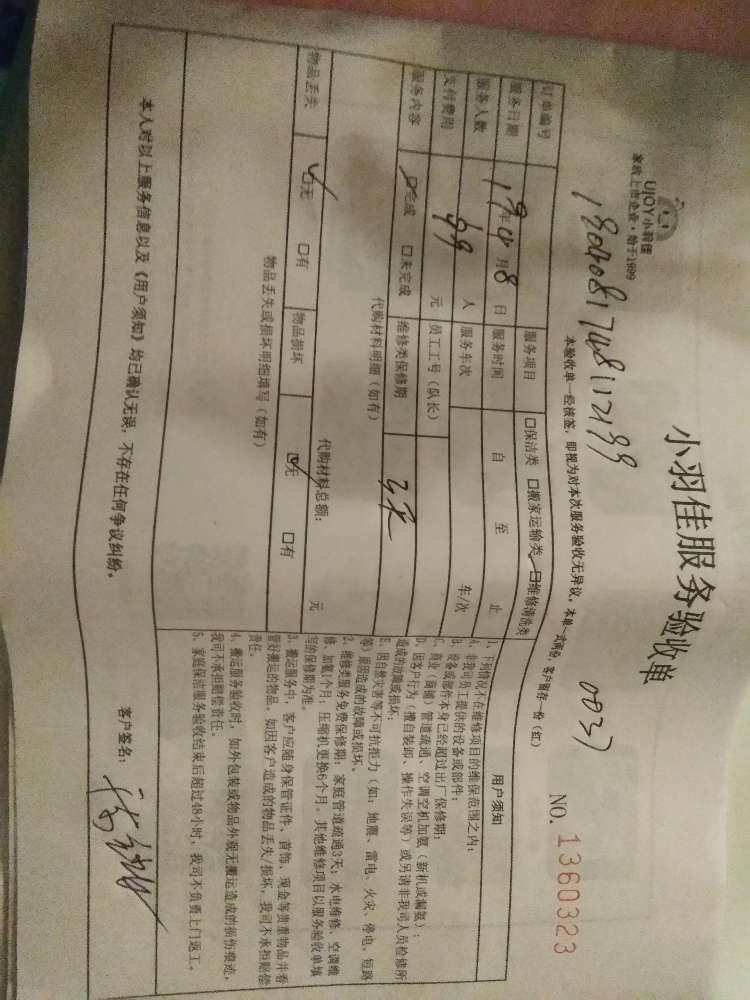 UJOY小羽佳
家政上市企业·始于1999
小羽佳服务验收单
NO. 1360323
0037
本验收单一经核签，即视为对本次服务验收无异议。本单一式两份，客户留存一份（红）
订单编号 服务项目 □保洁类 □搬家运输类 ☑维修清洗类
服务日期 19年04月8日 服务时间 自 至 止
服务人数 人 服务车次 车/次
支付费用 99 元 员工工号（队长）
服务内容 ☑完成 □未完成 维修类保修期 3天
代购材料明细（如有）
代购材料总额： 元
物品丢失 ☑无 □有 物品损坏 ☑无 □有
物品丢失或损坏明细填写（如有）
用户须知
1、下列情况不在维修项目的维保范围之内：
A、非我司员工提供的设备或部件；
B、设备或部件本身已经超过出厂保修期；
C、商业（商铺）管道疏通、空调空机加氨（新机或漏氨）；
D、因客户行为（擅自装卸、操作失误等）或另请非我司人员检修所
造成的故障或损坏；
E、因自然灾害等不可抗拒力（如：地震、雷电、火灾、停电、短路
等）原因造成的故障或损坏。
2、维修类服务免费保修期：家庭管道疏通3天；水电维修、空调维
修、加氨1个月；压缩机更换6个月。其他维修项目以服务验收单填
写的保修期为准。
3、搬运服务中，客户应随身保管证件、首饰、现金等贵重物品并看
管好搬运的物品。如因客户造成的物品丢失/损坏，我司不承担赔偿
责任。
4、搬运服务验收时，如外包装或物品外观无搬运造成的损伤痕迹，
我司不承担赔偿责任。
5、家庭保洁服务验收结束后超过48小时，我司不负责上门返工。
本人对以上服务信息以及《用户须知》均已确认无误，不存在任何争议纠纷。
客户签名：